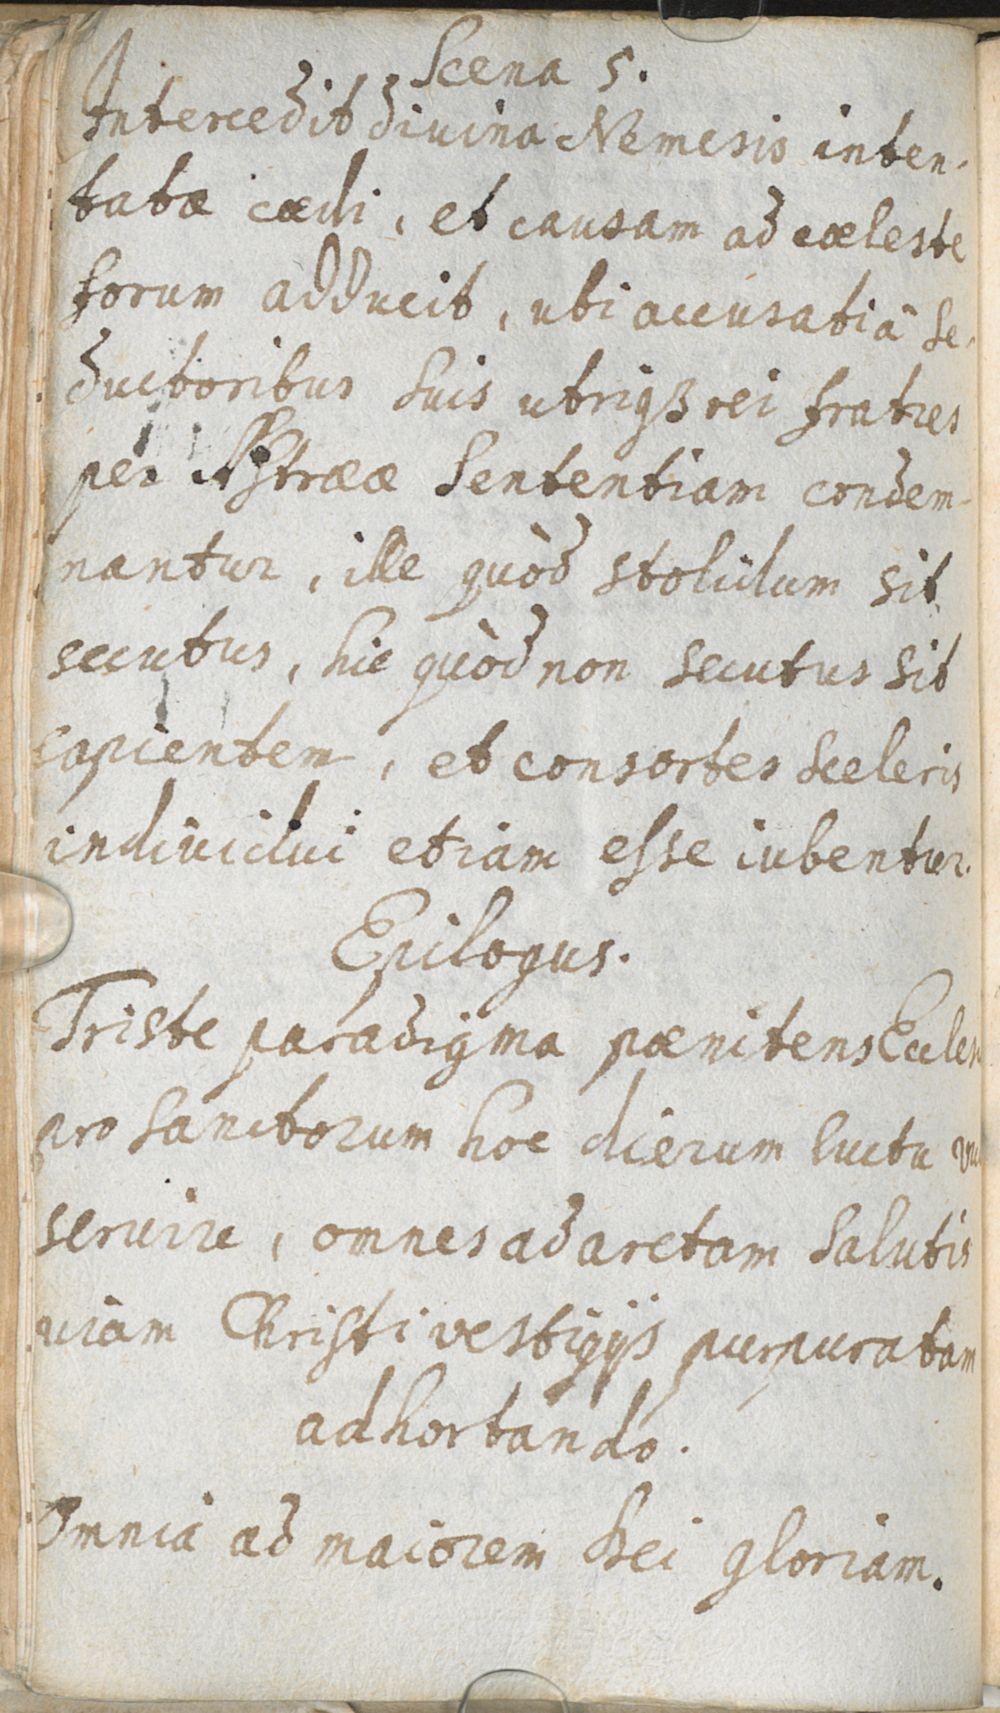 Scena 5.
Intercedit divina Nemesis inten-
tatæ cædi, et causam ad cœleste
forum adducit, ubi accusati â se-
ductoribus suis utriqꝫ rei fratres
per Astrææ sententiam condem-
nantur, ille quòd stolidum sit
secutus, hic quòd non secutus sit
sapientem, et consortes sceleris
individui etiam esse iubentur.
Epilogus.
Triste paradigma pœnitens
pro sanctorum hoc dierum luctu
servire, omnes ad arctam salutis
viam Christi vestigijs purpuratam
adhortando.
Omnia ad maiorem Dei gloriam.